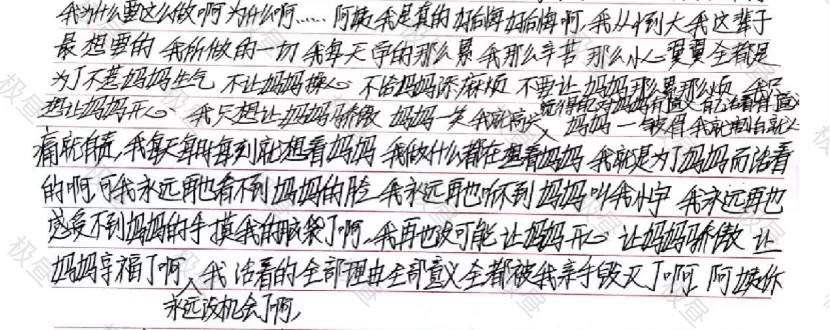 我为什么要这么做啊为什么啊……阿姨我是真的好后悔好后悔啊我从小到大我这辈子
最想要的我所做的一切我每天学的那么累我那么辛苦那么小心翼翼全都是
为了不惹妈妈生气 不让妈妈操心 不给妈妈添麻烦 不要让妈妈那么累那么烦 我只
想让妈妈开心 我只想让妈妈骄傲 妈妈一笑我就 觉得 对妈妈有意义 活着有意义 妈妈一皱眉我就
痛就自责,我每天每时每刻就想着妈妈 我做什么都在想着妈妈 我就是为了妈妈而活着
的啊,可我永远再也看不到妈妈的脸 我永远再也听不到妈妈叫我小宇 我永远再也
感受不到妈妈的手摸我的脑袋了啊,我再也没可能让妈妈开心 让妈妈骄傲 让
妈妈享福了啊,我活着的全部理由全部意义全都被我亲手毁灭了啊 阿姨你
永远没机会了啊,
极昼